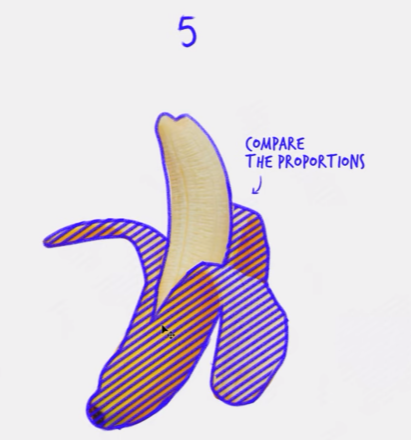 5
COMPARE
THE PROPORTIONS